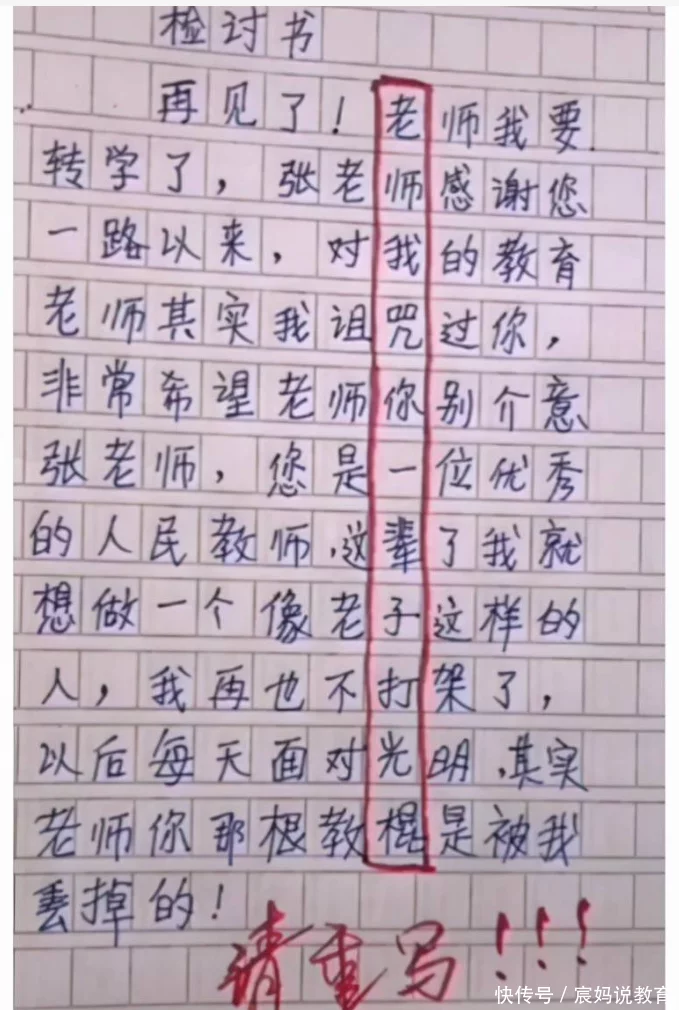 检讨书
再见了！老师我要
转学了，张老师感谢您
一路以来，对我的教育
老师其实我诅咒过你，
非常希望老师你别介意
张老师，您是一位优秀
的人民教师，这辈了我就
想做一个像老子这样的
人，我再也不打架了，
以后每天面对光明，其实
老师你那根教棍是被我
丢掉的！
请重写！！！
快传号／宸妈说教育